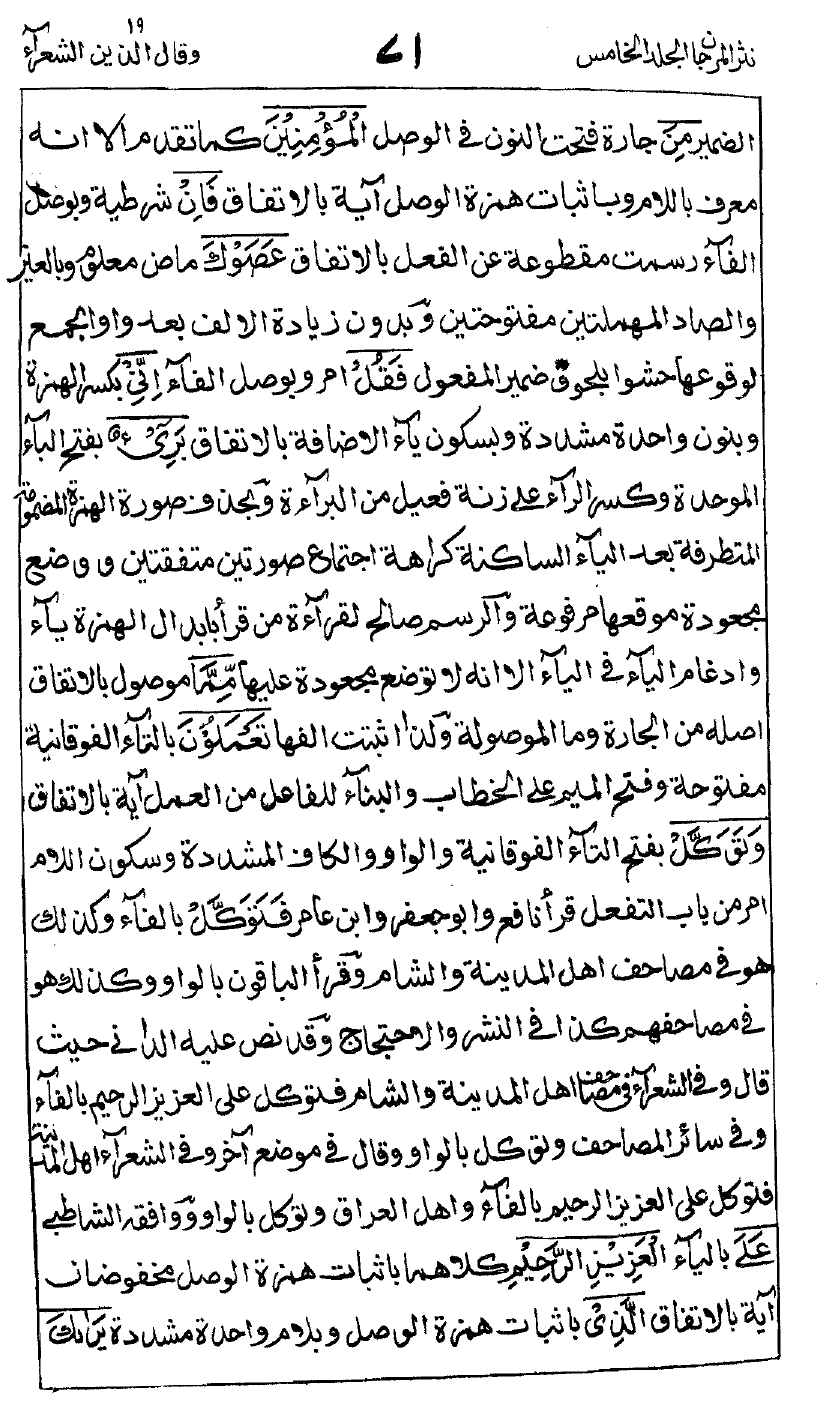 نثر المرجان الجلد الخامس
٧١
وقال الذين ١٩ الشعرآء
الضمير مِنَ جارة فتحت النون فى الوصل الْمُؤْمِنِيْنَ كما تقدم الا انه
معرف باللام وباثبات همزة الوصل آية بالاتفاق فَاِنْ شرطية وبوصل
الفآء رسمت مقطوعة عن الفعل بالاتفاق عَصَوْكَ ماض معلوم وبالعين
والصاد المهملتين مفتوحتين وبدون زيادة الالف بعد واو الجمع
لوقوعها حشوا بلحوق ضمير المفعول فَقُلْ امر وبوصل الفآء اِنِّيْ بكسر الهمزة
وبنون واحدة مشددة وبسكون يآء الاضافة بالاتفاق بَرِيْٓءٌ بفتح البآء
الموحدة وكسر الرآء على زنة فعيل من البرآءة وبحذف صورة الهمزة المضمومة
المتطرفة بعد اليآء الساكنة كراهة اجتماع صورتين متفقتين ووضع
مجعودة موقعها مرفوعة والرسم صالح لقرآءة من قرأ بابدال الهمزة يآء
وادغام اليآء فى اليآء الا انه لا توضع مجعودة عليها مِّمَّا موصول بالاتفاق
اصله من الجارة وما الموصولة ولذا اثبتت الفها تَعْمَلُوْنَ بالتآء الفوقانية
مفتوحة وفتح الميم على الخطاب والبنآء للفاعل من العمل آية بالاتفاق
وَتَوَكَّلْ بفتح التآء الفوقانية والواو والكاف المشددة وسكون اللام
امر من باب التفعل قرأ نافع وابو جعفر وابن عامر فَتَوَكَّلْ بالفآء وكذلك
هو فى مصاحف اهل المدينة والشام وقرأ الباقون بالواو وكذلك هو
فى مصاحفهم كذا فى النشر والاحتجاج وقد نص عليه الدانى حيث
قال وفى الشعرآء فى مصاحف اهل المدينة والشام فتوكل على العزيز الرحيم بالفآء
وفى سائر المصاحف وتوكل بالواو وقال فى موضع آخر وفى الشعرآء اهل المدينة
فتوكل على العزيز الرحيم بالفآء واهل العراق وتوكل بالواو ووافقه الشاطبى
عَلَى باليآء الْعَزِيْزِ الرَّحِيْمِ كلاهما باثبات همزة الوصل مخفوضان
آية بالاتفاق الَّذِيْ باثبات همزة الوصل وبلام واحدة مشددة يَرٰىكَ